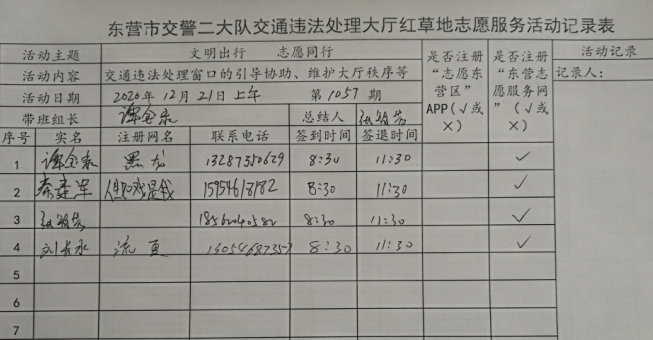 东营市交警二大队交通违法处理大厅红草地志愿服务活动记录表
活动主题 文明出行 志愿同行 是否注册“志愿东营区”APP(√或×) 是否注册“东营志愿服务网”(√或×) 活动记录
活动内容 交通违法处理窗口的引导协助、维护大厅秩序等 记录人:
活动日期 2020年12月21日上午 第1057期
带班组长 总结人
序号 实名 注册网名 联系电话 签到时间 签退时间
1 黑龙 13287350629 8:30 11:30 √
2 秦建军 15954618182 8:30 11:30 √
3 8:30 11:30 √
4 刘长水 流 8:30 11:30 √
5
6
7